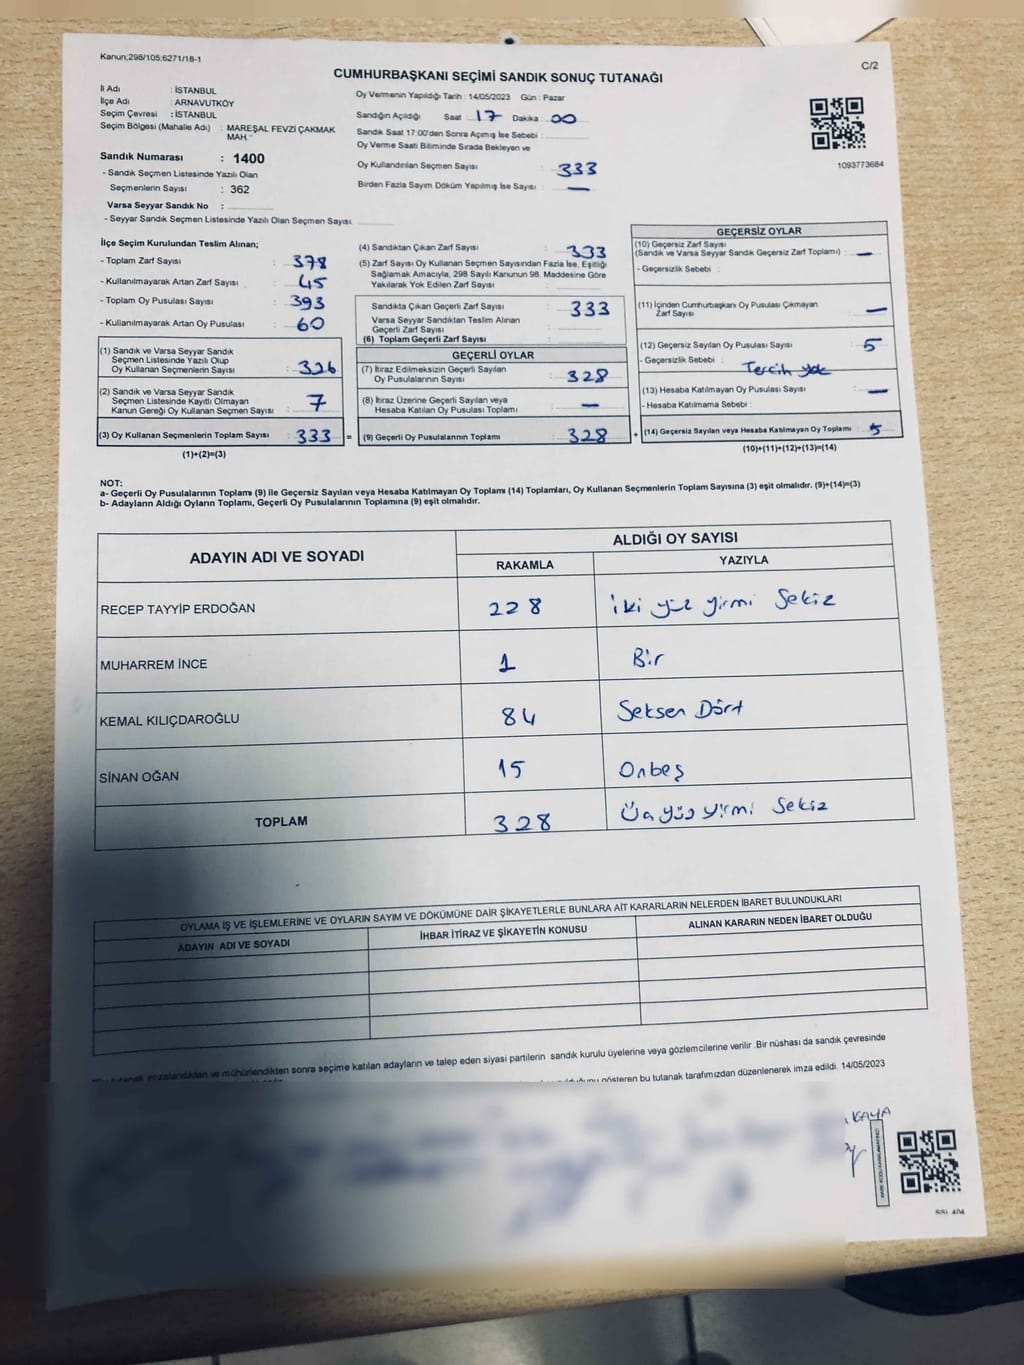 Kanun;298/105;6271/18-1
C/2
CUMHURBAŞKANI SEÇİMİ SANDIK SONUÇ TUTANAĞI
İl Adı : İSTANBUL
İlçe Adı : ARNAVUTKÖY
Seçim Çevresi : İSTANBUL
Seçim Bölgesi (Mahalle Adı) : MAREŞAL FEVZİ ÇAKMAK
MAH.
Sandık Numarası : 1400
- Sandık Seçmen Listesinde Yazılı Olan
Seçmenlerin Sayısı : 362
Varsa Seyyar Sandık No :
- Seyyar Sandık Seçmen Listesinde Yazılı Olan Seçmen Sayısı
Oy Vermenin Yapıldığı Tarih : 14/05/2023 Gün : Pazar
Sandığın Açıldığı Saat 17 Dakika : 00
Sandık Saat 17:00'den Sonra Açımış İse Sebebi :
Oy Verme Saati Bitiminde Sırada Bekleyen ve
Oy Kullandırılan Seçmen Sayısı : 333
Birden Fazla Sayım Döküm Yapılmış İse Sayısı : —
1093773684
İlçe Seçim Kurulundan Teslim Alınan;
- Toplam Zarf Sayısı : 378
- Kullanılmayarak Artan Zarf Sayısı : 45
- Toplam Oy Pusulası Sayısı : 393
- Kullanılmayarak Artan Oy Pusulası : 60
(1) Sandık ve Varsa Seyyar Sandık
Seçmen Listesinde Yazılı Olup
Oy Kullanan Seçmenlerin Sayısı : 326
(2) Sandık ve Varsa Seyyar Sandık
Seçmen Listesinde Kayıtlı Olmayan
Kanun Gereği Oy Kullanan Seçmen Sayısı : 7
(3) Oy Kullanan Seçmenlerin Toplam Sayısı : 333 =
(1)+(2)=(3)
(4) Sandıktan Çıkan Zarf Sayısı : 333
(5) Zarf Sayısı Oy Kullanan Seçmen Sayısından Fazla İse, Eşitliği
Sağlamak Amacıyla, 298 Sayılı Kanunun 98. Maddesine Göre
Yakılarak Yok Edilen Zarf Sayısı :
Sandıkta Çıkan Geçerli Zarf Sayısı : 333
Varsa Seyyar Sandıktan Teslim Alınan
Geçerli Zarf Sayısı :
(6) Toplam Geçerli Zarf Sayısı :
GEÇERLİ OYLAR
(7) İtiraz Edilmeksizin Geçerli Sayılan
Oy Pusulalarının Sayısı : 328
(8) İtiraz Üzerine Geçerli Sayılan veya
Hesaba Katılan Oy Pusulası Toplamı : —
(9) Geçerli Oy Pusulalarının Toplamı : 328 +
GEÇERSİZ OYLAR
(10) Geçersiz Zarf Sayısı
(Sandık ve Varsa Seyyar Sandık Geçersiz Zarf Toplamı) : —
- Geçersizlik Sebebi :
(11) İçinden Cumhurbaşkanı Oy Pusulası Çıkmayan
Zarf Sayısı : —
(12) Geçersiz Sayılan Oy Pusulası Sayısı : 5
- Geçersizlik Sebebi : Tercih yok
(13) Hesaba Katılmayan Oy Pusulası Sayısı : —
- Hesaba Katılmama Sebebi :
(14) Geçersiz Sayılan veya Hesaba Katılmayan Oy Toplamı : 5
(10)+(11)+(12)+(13)=(14)
NOT:
a- Geçerli Oy Pusulalarının Toplamı (9) ile Geçersiz Sayılan veya Hesaba Katılmayan Oy Toplamı (14) Toplamları, Oy Kullanan Seçmenlerin Toplam Sayısına (3) eşit olmalıdır. (9)+(14)=(3)
b- Adayların Aldığı Oyların Toplamı, Geçerli Oy Pusulalarının Toplamına (9) eşit olmalıdır.
ADAYIN ADI VE SOYADI
ALDIĞI OY SAYISI
RAKAMLA YAZIYLA
RECEP TAYYİP ERDOĞAN 228 iki yüz yirmi Sekiz
MUHARREM İNCE 1 Bir
KEMAL KILIÇDAROĞLU 84 Seksen Dört
SİNAN OĞAN 15 Onbeş
TOPLAM 328 Üç yüz yirmi Sekiz
OYLAMA İŞ VE İŞLEMLERİNE VE OYLARIN SAYIM VE DÖKÜMÜNE DAİR ŞİKAYETLERLE BUNLARA AİT KARARLARIN NELERDEN İBARET BULUNDUKLARI
ADAYIN ADI VE SOYADI İHBAR İTİRAZ VE ŞİKAYETİN KONUSU ALINAN KARARIN NEDEN İBARET OLDUĞU
tutanak imzalandıktan ve mühürlendikten sonra seçime katılan adayların ve talep eden siyasi partilerin sandık kurulu üyelerine veya gözlemcilerine verilir .Bir nüshası da sandık çevresinde
gösteren bu tutanak tarafımızdan düzenlenerek imza edildi. 14/05/2023
KAYA